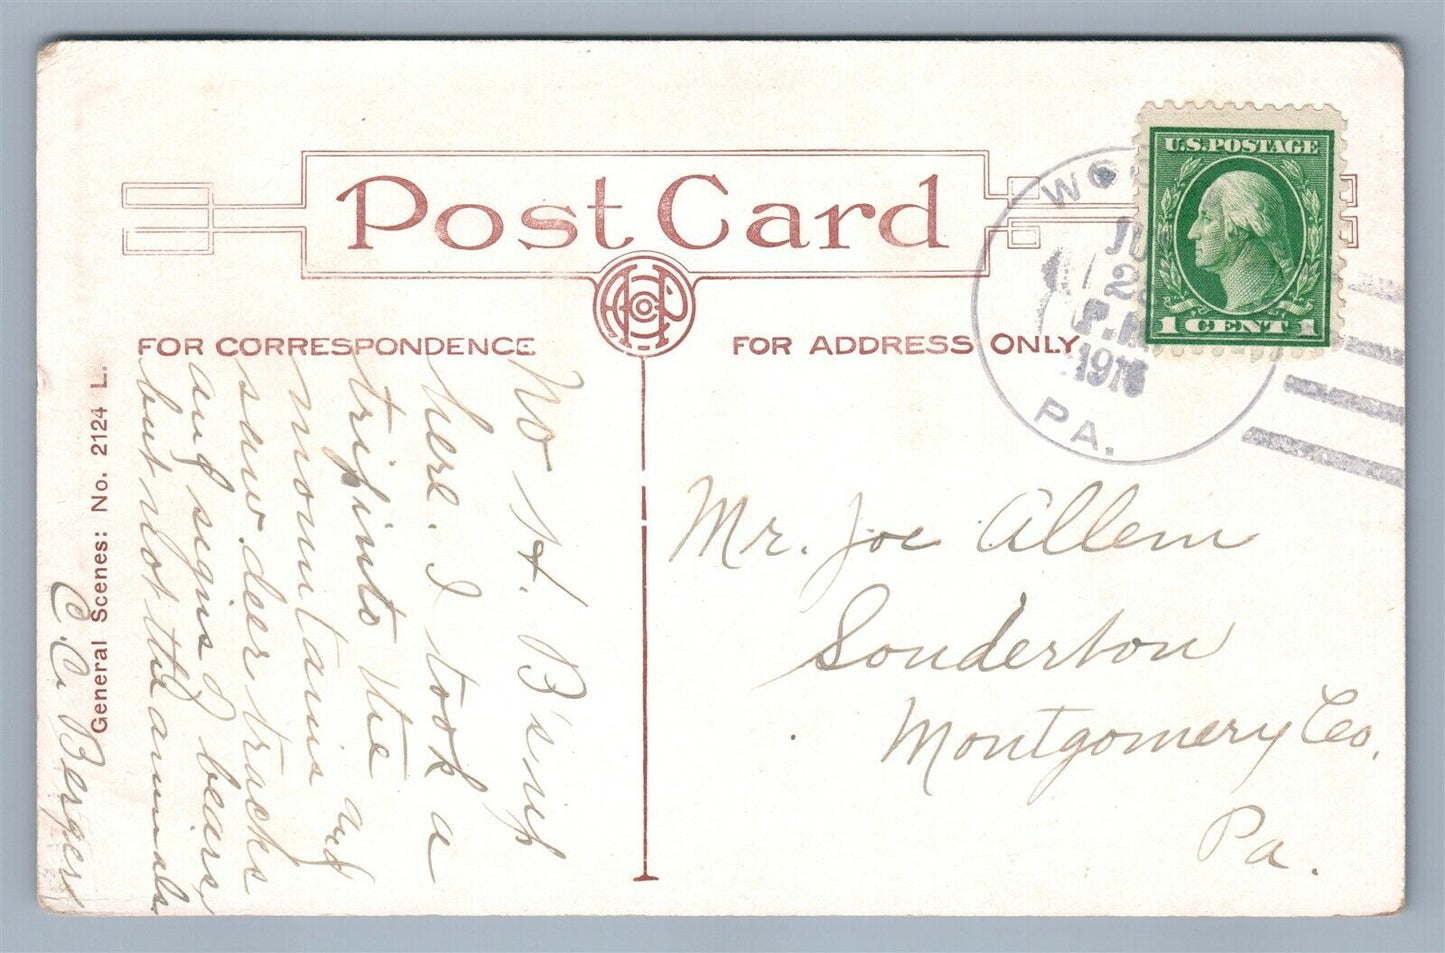 Post Card
FOR CORRESPONDENCE
FOR ADDRESS ONLY
U.S. POSTAGE
1 CENT 1
P.M.
PA.
General Scenes: No. 2124 L.
No H. B's
here. I took a
trip into the
mountains and
saw deer tracks
and signs of bears,
but not the animals
C. C. Berger
Mr. Joe Allem
Souderton
Montgomery Co.
Pa.